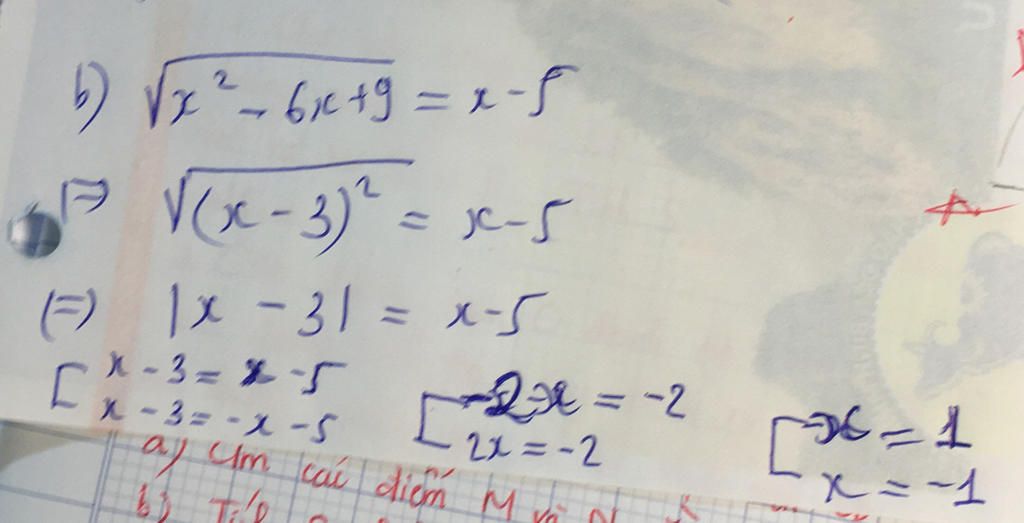 b) √x² - 6x+9 = x-5
(=) √(x-3)² = x-5
(=) |x - 3| = x-5
[ x - 3 = x - 5
x - 3 = -x - 5
[ = -2
2x = -2
[ -x = 1
x = -1
a) cái điểm M và N
b)